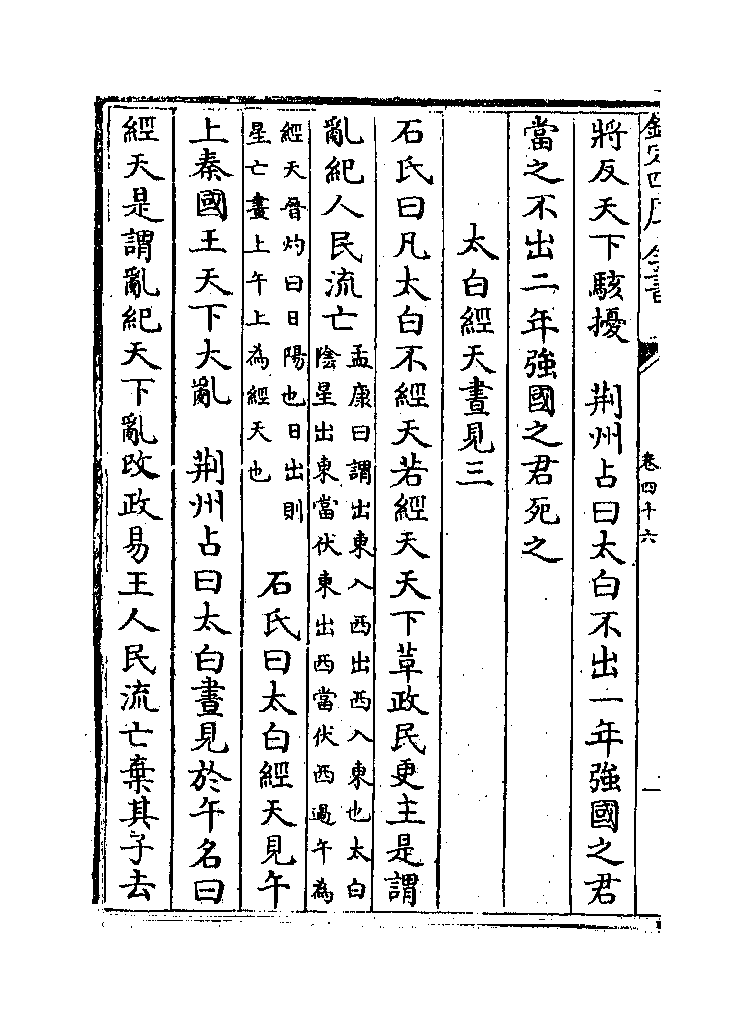 欽定四庫全書 卷四十六 一
將反天下駭擾 荆州占曰太白不出一年強國之君
當之不出二年強國之君死之
太白經天晝見三
石氏曰凡太白不經天若經天天下革政民更主是謂
亂紀人民流亡
孟康曰謂出東入西出西入東也太白
陰星出東當伏東出西當伏西過午為
經天晉灼曰日陽也日出則
星亡晝上午上為經天也
石氏曰太白經天見午
上秦國王天下大亂 荆州占曰太白晝見於午名曰
經天是謂亂紀天下亂改政易王人民流亡棄其子去